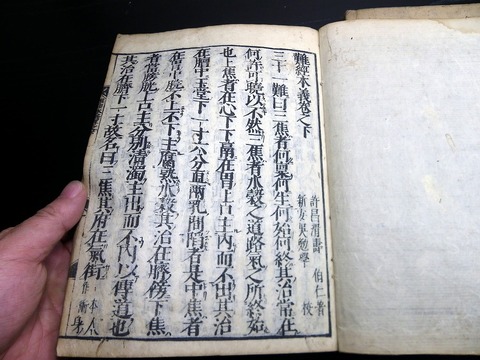 難經本義卷之下
許昌滑壽 伯仁著
新安吳勉學 校
三十一難曰三焦者何稟何生何始何終其治常在
何許可曉以不然三焦者水穀之道路氣之所終始
也上焦者在心下下膈在胃上口主內而不出其治
在膻中玉堂下一寸六分直兩乳間陷者是中焦者
在胃中脘不上不下主腐熟水穀其治在臍傍下焦
者當膀胱上口主分別清濁主出而不內以傳道也
其治在臍下一寸故名曰三焦其府在氣街